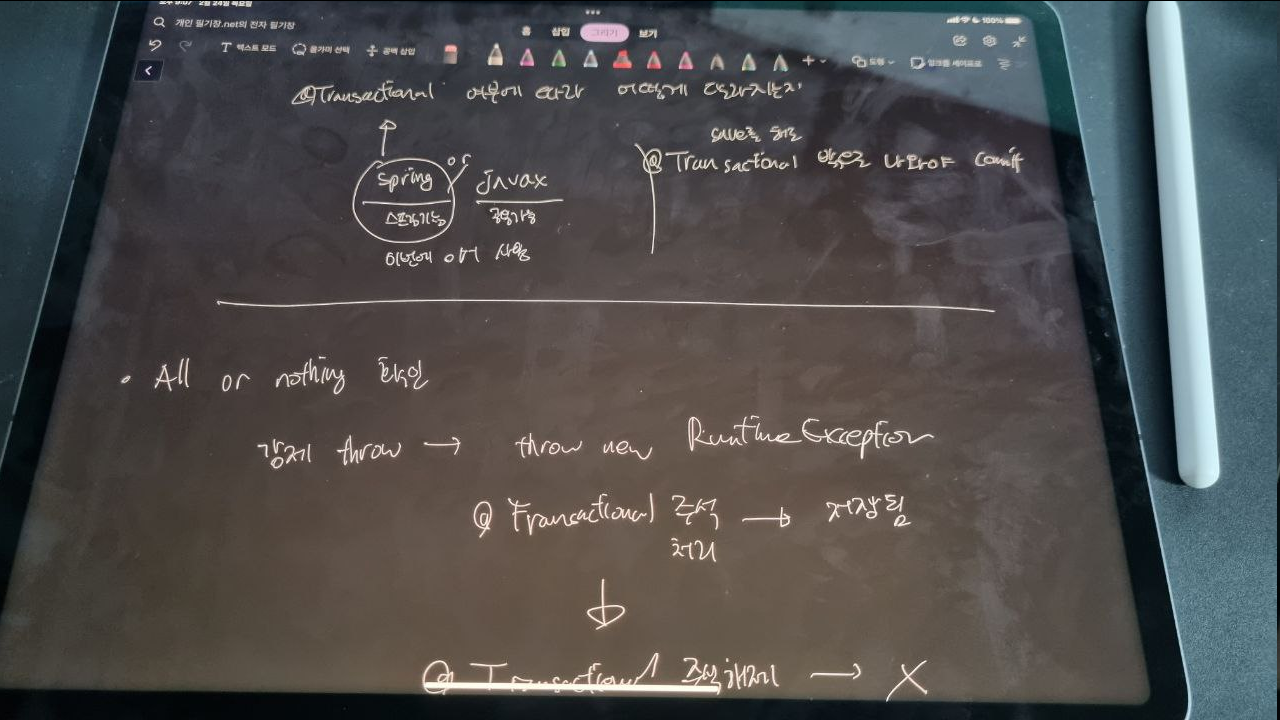 오후 9:07 2월 24일 목요일
100%
개인 필기장.net의 전자 필기장
홈 삽입 그리기 보기
텍스트 모드 올가미 선택 공백 삽입 도형 잉크를 셰이프로
@Transactional 여부에 따라 어떻게 달라지는지
save를 해도
@Transactional 밖으로 나와야 commit
spring or javax
스프링기능 공용기능
이번에 이거 사용
• All or nothing 확인
강제 throw → throw new RuntimeException
@Transactional 주석 → 저장됨
처리
↓
@Transactional 주석해제 → X